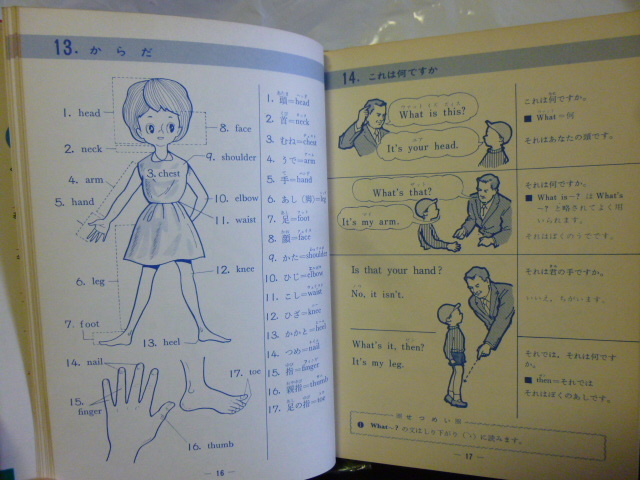 13. からだ
1. head
2. neck
3. chest
4. arm
5. hand
6. leg
7. foot
8. face
9. shoulder
10. elbow
11. waist
12. knee
13. heel
14. nail
15. finger
16. thumb
17. toe
1. 頭=head
2. 首=neck
3. むね=chest
4. うで=arm
5. 手=hand
6. あし(脚)=leg
7. 足=foot
8. 顔=face
9. かた=shoulder
10. ひじ=elbow
11. こし=waist
12. ひざ=knee
13. かかと=heel
14. つめ=nail
15. 指=finger
16. 親指=thumb
17. 足の指=toe
— 16 —
14. これは何ですか
What is this?
It's your head.
これは何ですか。
■ What=何
それはあなたの頭です。
What's that?
It's my arm.
それは何ですか。
■ What is–? は What's
–? と略されてよく用
いられます。
それはぼくのうでです。
Is that your hand?
No, it isn't.
それは君の手ですか。
いいえ、ちがいます。
What's it, then?
It's my leg.
それでは、それは何です
か。
■ then=それでは
それはぼくのあしです。
せつめい
❶ What–? の文はしり下がり(↘)に読みます。
— 17 —